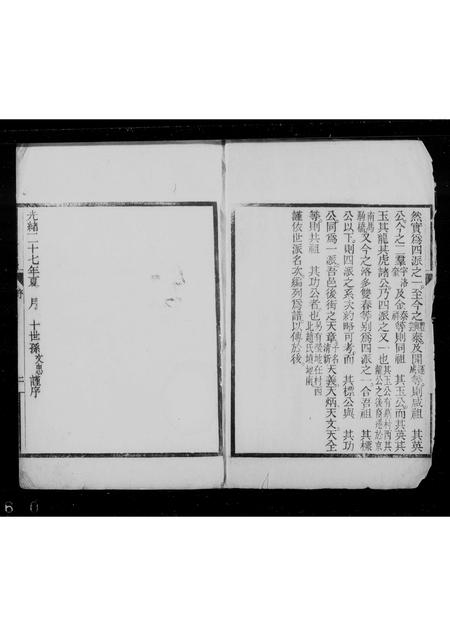 然實爲四派之一至今之泰及開等則咸祖 其英
公今之二羣字洛奎及金泰祥等則同祖 其玉公而其英其
玉其龍其虎諸公乃四派之又一也
南馬騎磯又今之洛多雙春等別爲四派之二合吾祖 其標
公以下則四派之系大約略可考而 其標公與 其功
公同爲一派吾邑後街之天章天義天炳天文天全
等則其祖 其功公者也
謹依世派名次編列爲譜以傳於後
光緒二十七年夏 月 十世孫文思謹序
序
二
6 0